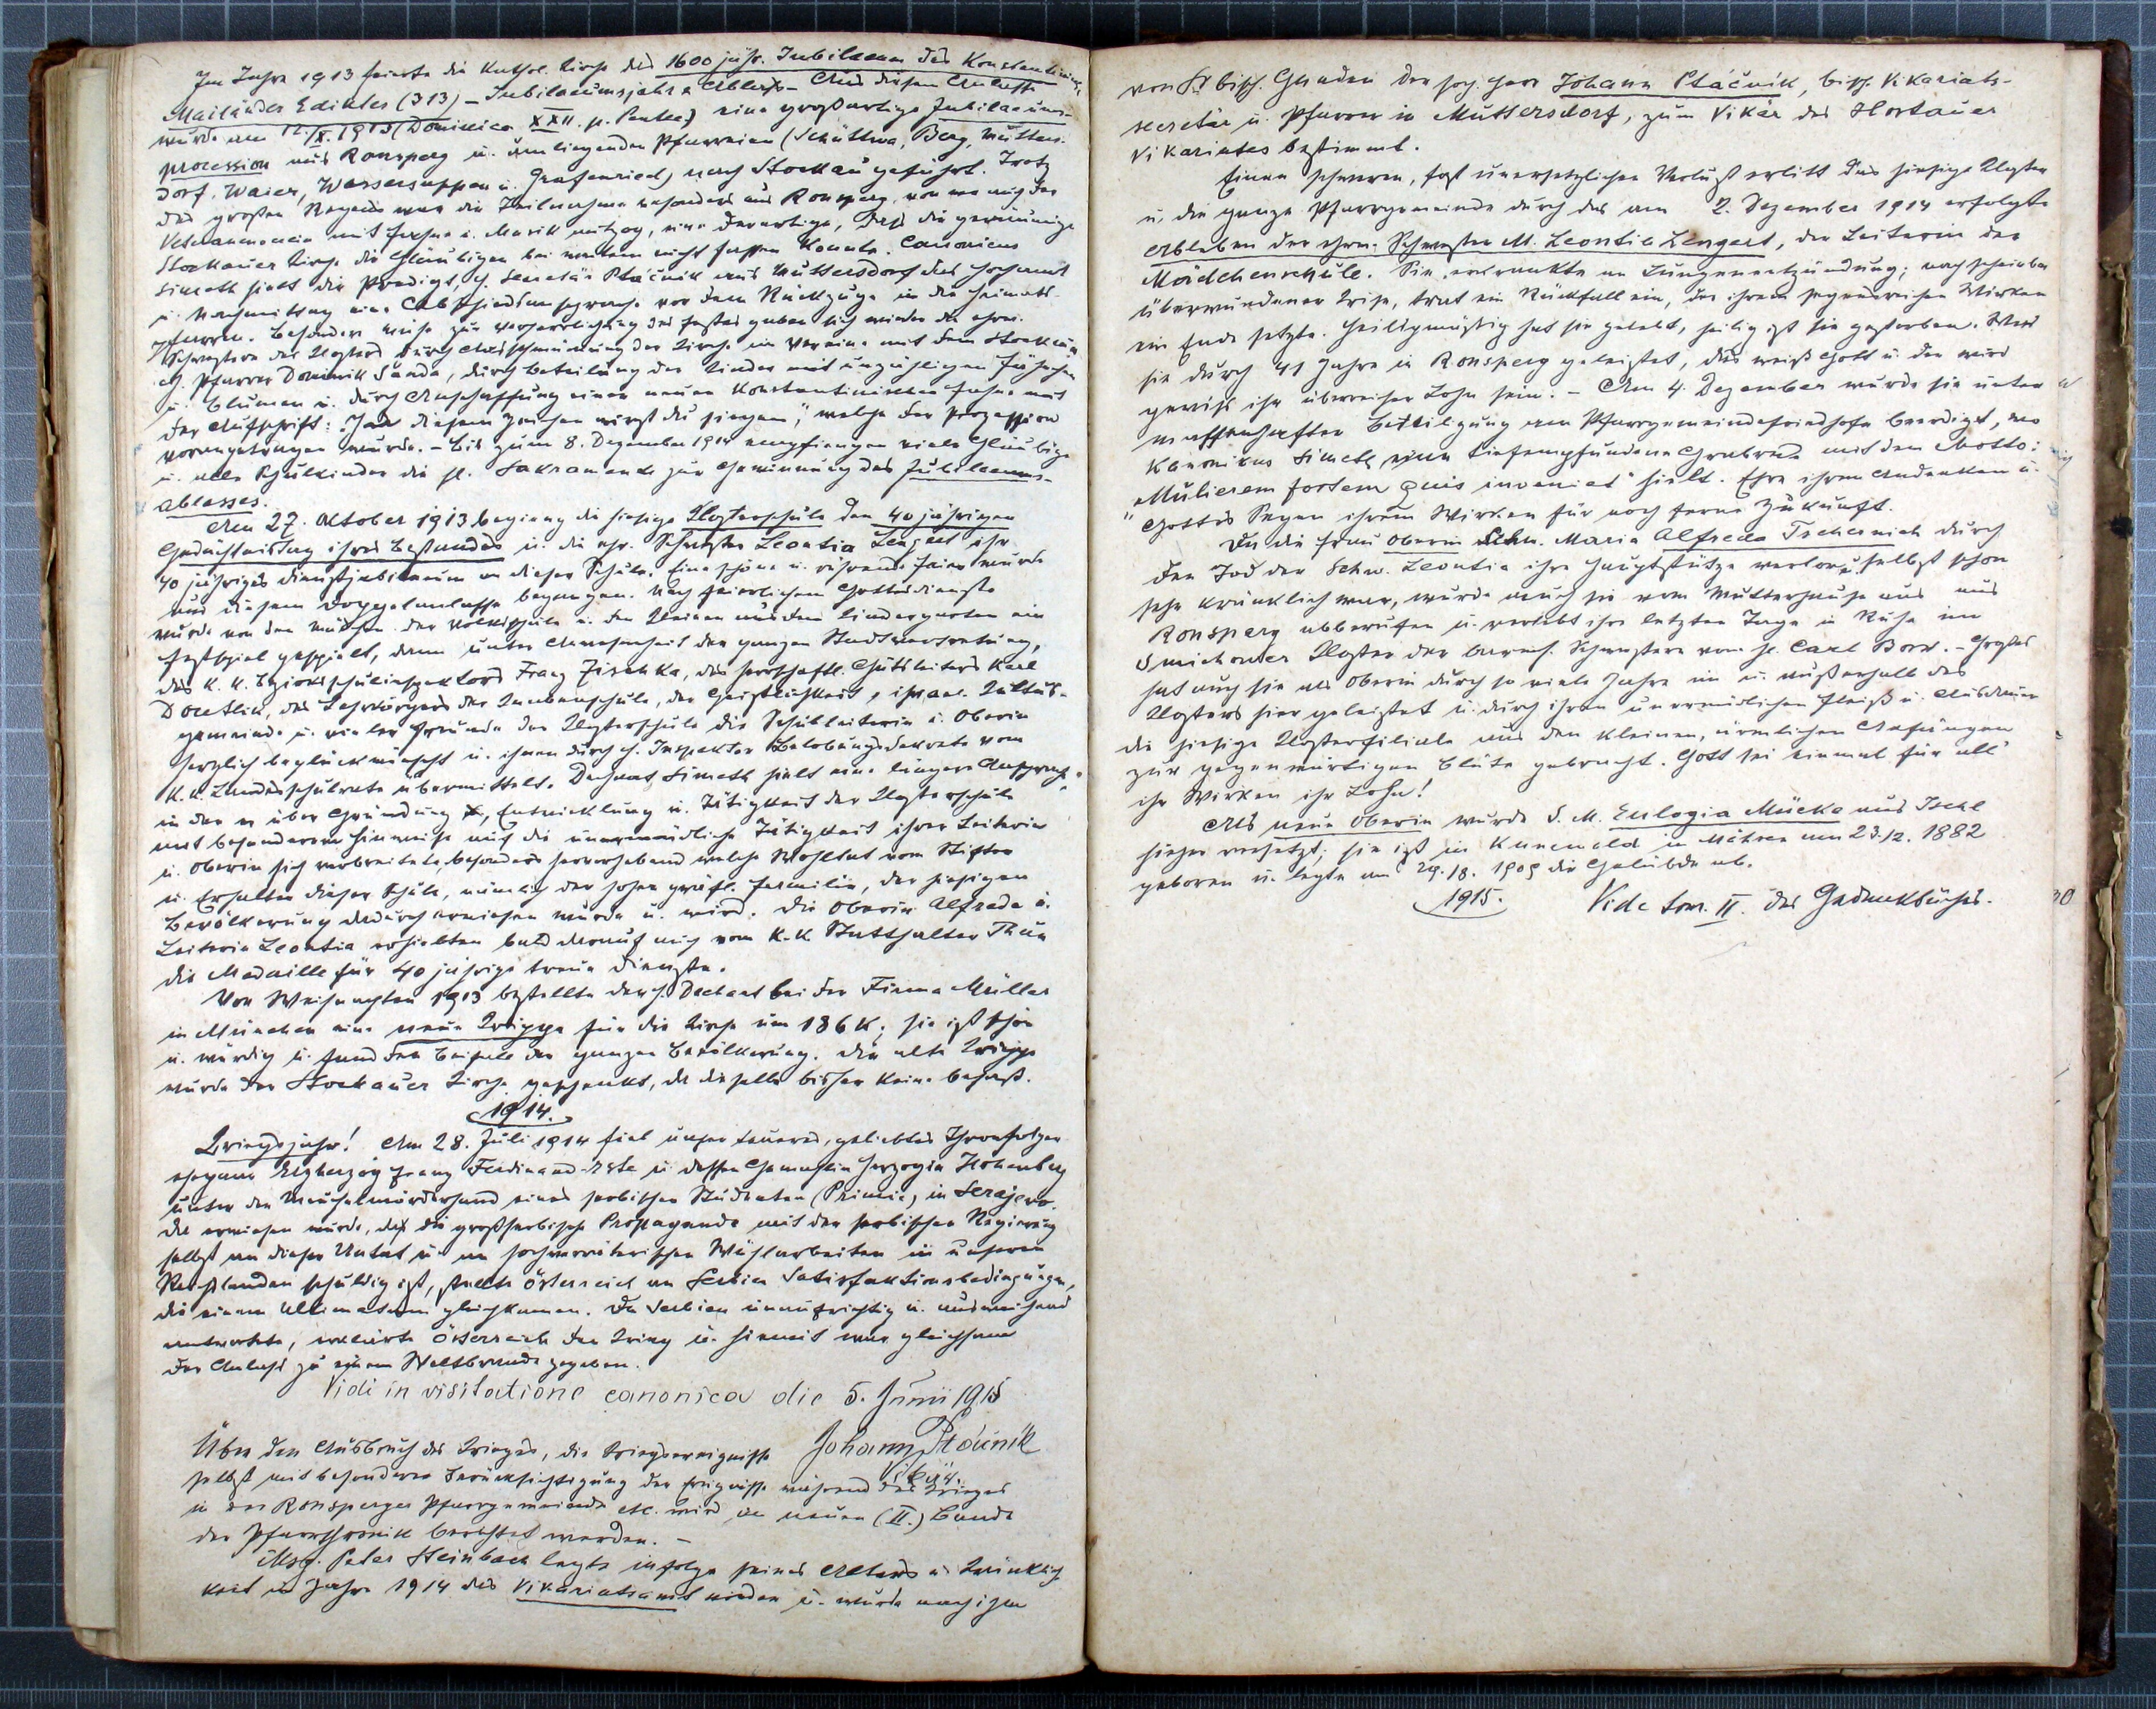 Im Jahre 1913 feierte die kathol. Kirche das 1600 jähr. Jubilaeum des Konstantinischen
Mailänder Ediktes (313) – Jubilaeumsjahr u. Ablaß – Aus diesem Anlasse
wurde am 12./X. 1913 (Dominica XXII. p. Pentec.) eine großartige Jubilaeums-
procession aus Ronsperg u. umliegenden Pfarreien (Schüttwa, Berg, Mutters-
dorf, Waier, Wassersuppen u. Grafenried) nach Stockau geführt. Trotz
des großen Regens war die Teilnahme besonders aus Ronsperg, von wo auch der
Veteranenverein mit Fahne u. Musik mitzog, eine derartige, daß die geräumige
Stockauer Kirche die Gläubigen bei weitem nicht fassen konnte. Canonicus
Simeth hielt die Predigt, H. Secretär Ptáčnik aus Muttersdorf das Hochamt
u. Nachmittag eine Abschiedsansprache vor dem Rückzuge in die Heimats-
pfarren. Besondere Mühe zur Verherrlichung des Festes gaben sich wieder die ehrw.
Schwestern des Klosters durch Ausschmückung der Kirche im Vereine mit dem Stockauer
H. Pfarrer Dominik Sanda, durch Beteilung der Kinder mit unzähligen Fähnchen
u. Blumen u. durch Anschaffung einer neuen Konstantinischen Fahne mit
der Aufschrift: "In diesem Zeichen wirst du siegen", welche der Prozession
vorangetragen wurde. – Bis zum 8. Dezember 1914 empfiengen viele Gläubige
u. alle Schulkinder die hl. Sakramente zur Gewinnung des Jubilaeums-
ablasses.
Am 27. Oktober 1913 beging die hiesige Klosterschule den 40 jährigen
Gedächtnistag ihres Bestandes u. die ehr. Schwester Leontia Lengert ihr
40 jähriges Dienstjubilaeum an dieser Schule. Eine schöne u. rührende Feier wurde
aus diesem Doppelanlasse begangen. Nach feierlichem Gottesdienste
wurde von den Mädchen der Volksschule u. den Kleinen aus dem Kindergarten ein
Festspiel gespielt, dann unter Anwesenheit der ganzen Stadtvertretung,
des k. k. Bezirksschulinspektors Franz Zischka, des herrschaftl. Gutsleiters Karl
, des Lehrkörpers der Knabenschule, der Geistlichkeit, israel. Kultus-
gemeinde u. vieler Freunde der Klosterschule die Schulleiterin u. Oberin
herzlich beglückwünscht u. ihnen durch H. Inspektor Belobungsdekrete vom
k. k. Landesschulrate übermittelt. Dechant Simeth hielt eine längere Ansprache,
in der er über Gründung, Entwicklung u. Tätigkeit der Klosterschule
mit besonderem Hinweise auf die unermüdliche Tätigkeit ihrer Leiterin
u. Oberin sich verbreitete, besonders hervorhebend welche Wohltat vom Stifter
u. Erhalter dieser Schule, nämlich der hohen gräfl. Familie, der hiesigen
Bevölkerung dadurch erwiesen wurde u. wird. Die Oberin Alfreda u.
Leiterin Leontia erhielten bald darauf auch vom k. k. Statthalter Thun
die Medaille für 40 jährige treue Dienste.
Vor Weihnachten 1913 bestellte der H. Dechant bei der Firma Müller
in München eine neue Krippe für die Kirche um 186 K; sie ist schön
u. würdig u. fand den Beifall der ganzen Bevölkerung. Die alte Krippe
wurde der Stockauer Kirche geschenkt, da dieselbe bisher keine besaß.
1914.
Kriegsjahr! Am 28. Juli 1914 fiel unser teurer, geliebter Thronfolger
Erzherzog Franz Ferdinand-Este u. dessen Gemahlin Herzogin Hohenberg
unter der Meuchelmörderhand eines serbischen Studenten (Princip) in Serajevo.
Da erwiesen wurde, daß die großserbische Propaganda mit der serbischen Regierung
selbst an dieser Untat u. an hochverräterischen Wühlarbeiten in unseren
Reichslanden schuldig ist, stellte Österreich an Serbien Satisfaktionsbedingungen,
die einem Ultimatum gleichkamen. Da Serbien unaufrichtig u. ausweichend
antwortete, erklärte Österreich den Krieg u. hiemit war gleichsam
der Anlaß zu einem Weltbrande gegeben.
Vidi in visitatione canonica die 5. Junii 1915
Johann Ptáčnik
Vikär.
Über den Ausbruch des Krieges, die Kriegsereignisse
selbst mit besonderer Berücksichtigung der Ereignisse während des Krieges
in der Ronsperger Pfarrgemeinde etc. wird im neuen (II.) Bande
der Pfarrchronik berichtet werden. –
Msg. Peter Steinbach legte infolge seines Alters u. Kränklich-
keit im Jahre 1914 das Vikariatsamt nieder u. wurde nach ihm
von Sr. bisch. Gnaden der hoch. Herr Johann Ptáčnik, bisch. Vikariats-
secretär u. Pfarrer in Muttersdorf, zum Vikär des Hostauer
Vikariates bestimmt.
Einen schweren, fast unersetzlichen Verlust erlitt das hiesige Kloster
u. die ganze Pfarrgemeinde durch das am 2. Dezember 1914 erfolgte
Ableben der ehrw. Schwester M. Leontia Lengert, der Leiterin der
Mädchenschule. Sie erkrankte an Lungenentzündung; nach scheinbar
überwundener Krise, trat ein Rückfall ein, der ihrem segensreichen Wirken
ein Ende setzte. Heiligmäßig hat sie gelebt, heilig ist sie gestorben. Was
sie durch 41 Jahre in Ronsperg geleistet, das weiß Gott u. der wird
gewiß ihr überreicher Lohn sein. – Am 4. Dezember wurde sie unter
massenhafter Beteiligung am Pfarrgemeindefriedhofe beerdigt, wo
Kanonikus Simeth eine tiefempfundene Grabrede mit dem Motto:
"Mulierem fortem quis inveniet" hielt. Ehre ihrem Andenken u.
Gottes Segen ihrem Wirken für noch ferne Zukunft.
Da die Frau Oberin Schw. Maria Alfreda Tschernich durch
den Tod der Schw. Leontia ihre Hauptstütze verlor u. selbst schon
sehr kränklich war, wurde auch sie vom Mutterhause aus aus
Ronsperg abberufen u. verlebt ihre letzten Tage in Ruhe im
Smichower Kloster der barmh. Schwestern vom hl. Carl Borr. – Großes
hat auch sie als Oberin durch so viele Jahre in u. außerhalb des
Klosters hier geleistet u. durch ihren unermüdlichen Fleiß u. Ausdauer
die hiesige Klosterfiliale aus den kleinen, ärmlichen Anfängen
zur gegenwärtigen Blüte gebracht. Gott sei einmal für all'
ihr Wirken ihr Lohn!
Als neue Oberin wurde S. M. Eulogia Mücke aus Ischl
hieher versetzt; sie ist in Kunewald in Mähren am 23.12. 1882
geboren u. legte am 29.18. 1909 die Gelübde ab.
1915. Vide tom. II. des Gedenkbuches.